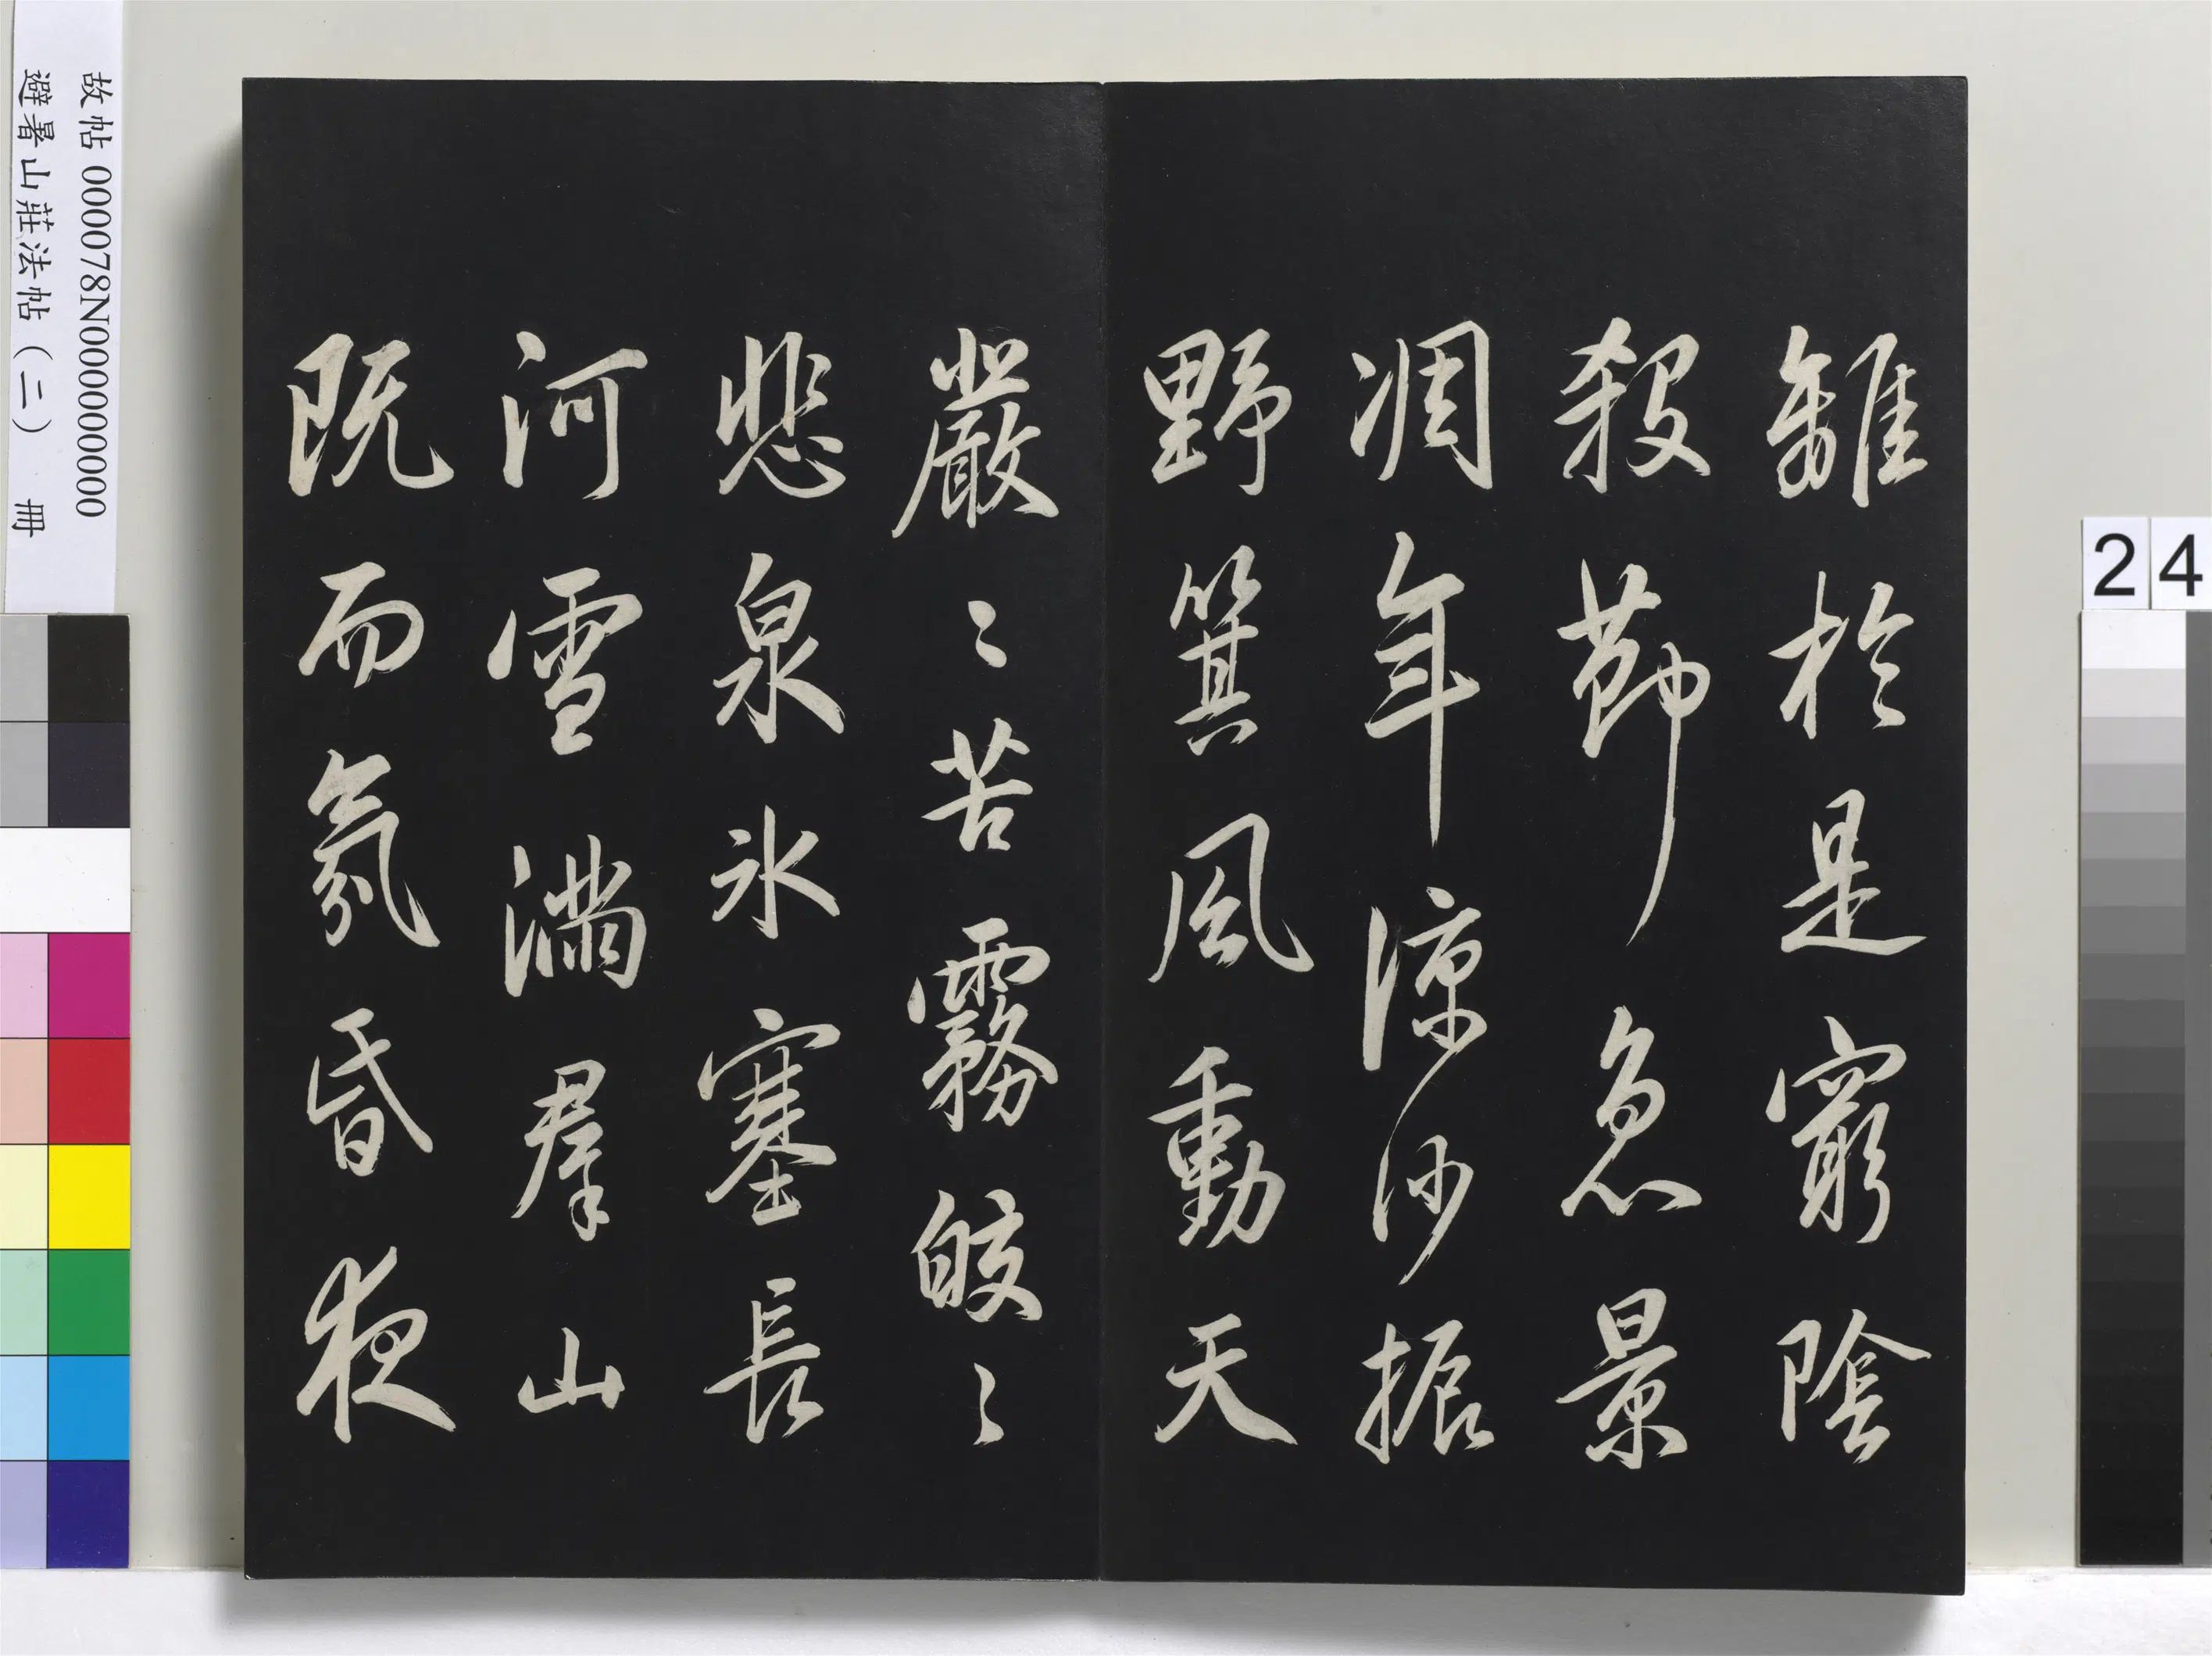 離於是窮陰
殺節急景
凋年涼沙振
野箕風動天
嚴〻苦霧皎〻
悲泉冰塞長
河雪滿羣山
既而氛昏夜
故帖 000078N000000000
避暑山莊法帖（二） 冊
24